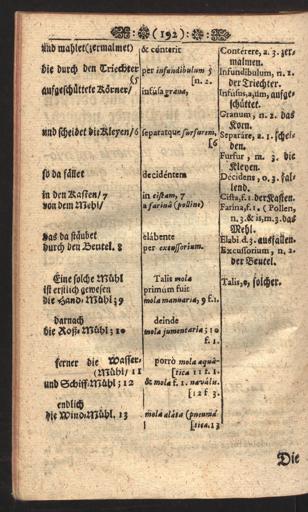 (192)
und mahlet (zermalmet)
die durch den Triechter
(5
aufgeschüttete Körner/
und scheidet die Kleyen/6
so da fället
in den Kasten/ 7
von dem Mehl/
das da stäubet
durch den Beutel. 8
Eine solche Mühl
ist erstlich gewesen
die Hand-Mühl; 9
darnach
die Roß-Mühl; 10
ferner die Wasser-
(Mühl/ 11
und Schiff-Mühl; 12
endlich
die Wind-Mühl. 13
& cónterit
per infundibulum 5
[n. 2.
infúsa grana,
separatque furfurem,
[6
decidéntem
in cistam, 7
a farinâ (polline)
elábente
per excussorium.
Talis mola
primùm fuit
mola manuaria, 9 f.1.
deinde
mola jumentaria; 10
f. 1.
porrò mola aquá-
[tica 11 f. 1.
& mola f. 1. navális.
[12 f. 3.
mola aláta (pneumá
[tica. 13
Contérere, a. 3. zer-
malmen.
Infundibulum, n. 2.
der Triechter.
Infusus, a, um, aufge-
schüttet.
Granum, n. 2. das
Korn.
Separáre, a. 1. schei-
den.
Furfur, m. 3. die
Kleyen.
Décidens, o. 3. fal-
lend.
Cista, f. 1. der Kasten.
Farina, f. 1. (Pollen,
n. 3. & is, m. 3. das
Mehl.
Elabi. d. 3. ausfallen.
Excussorium, n. 2.
der Beutel.
Talis, e, solcher.
Die